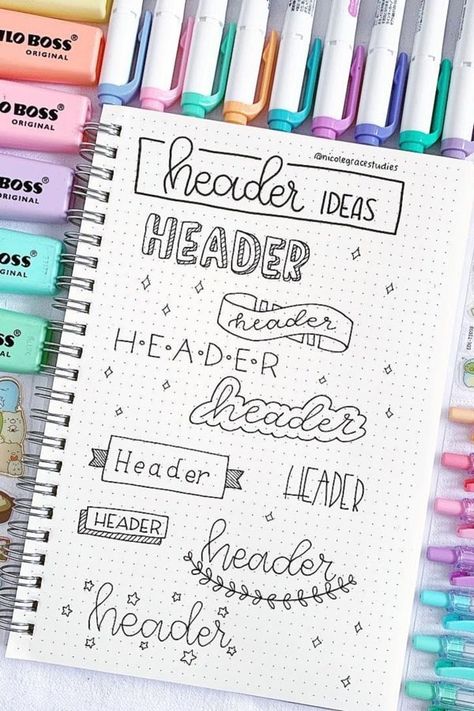 ILO BOSS®
ORIGINAL
@nicolegracestudies
header IDEAS
HEADER
header
H•E•A•D•E•R
header
Header
HEADER
HEADER
header
header
LO BOSS®
ORIGINAL
BOSS®
ORIGINAL
OSS®
GINAL
OSS®
GINAL